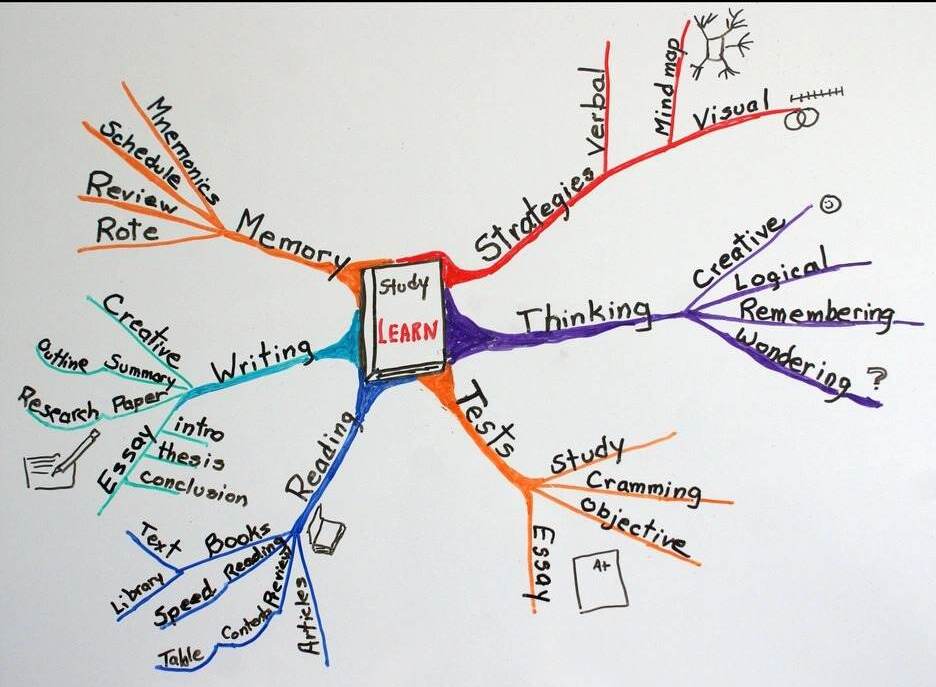 Study
LEARN
Strategies
Verbal
Mind map
Visual
Thinking
Creative
Logical
Remembering
Wondering ?
Tests
Study
Cramming
Objective
Essay
A+
Reading
Books
Text
Library
Speed Reading
Preview
Contents
Table
Articles
Writing
Creative
Summary
Outline
Paper
Research
Essay
intro
thesis
conclusion
Memory
Mnemonics
Schedule
Review
Rote